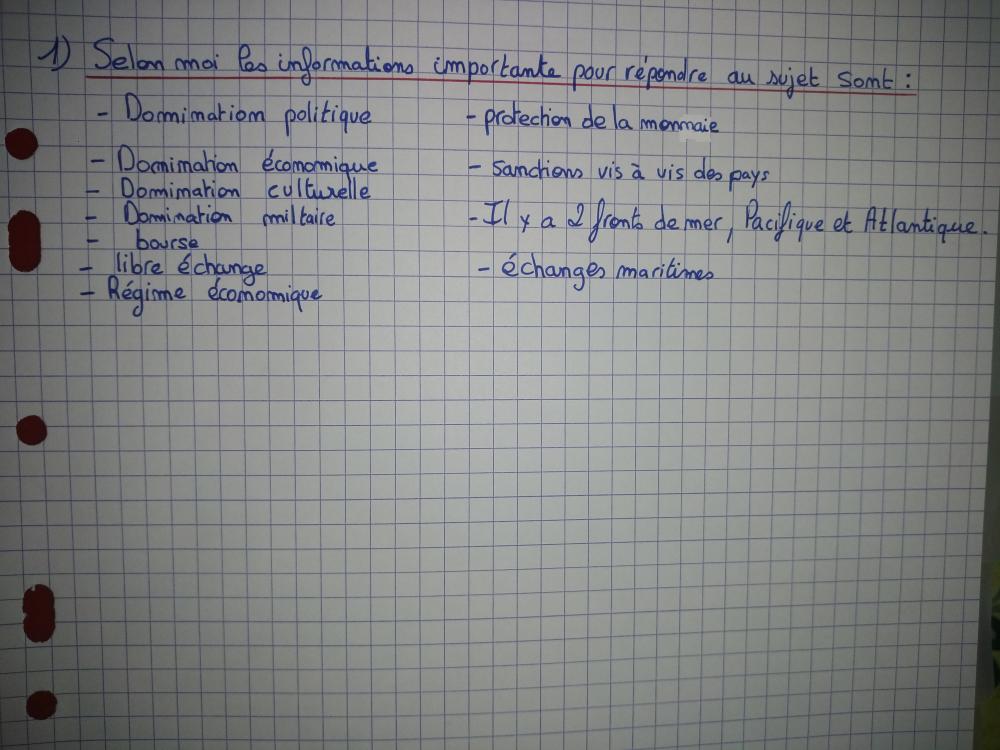 1) Selon moi les informations importante pour répondre au sujet sont :
- Domination politique
- Domination économique
- Domination culturelle
- Domination militaire
- bourse
- libre échange
- Régime économique
- protection de la monnaie
- sanctions vis à vis des pays
- Il y a 2 fronts de mer, Pacifique et Atlantique.
- échanges maritimes